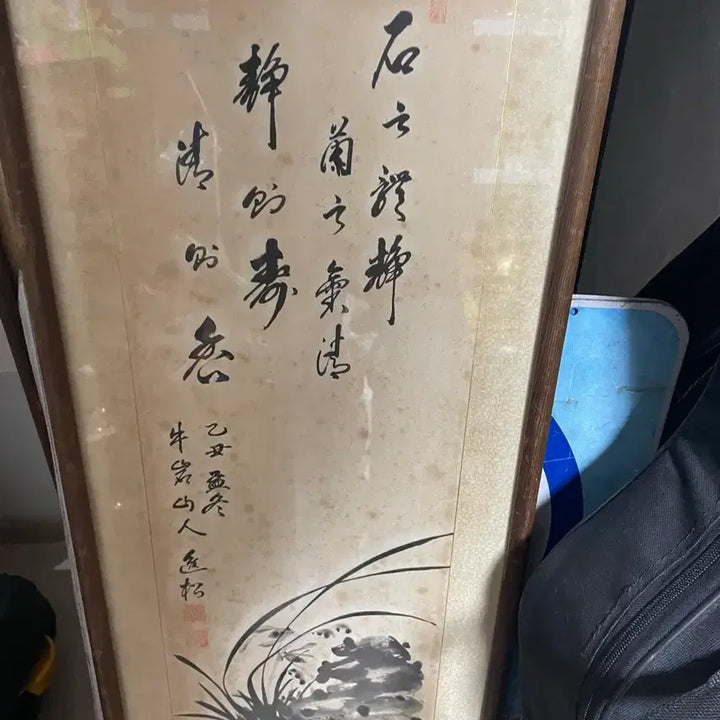 石之體靜
蘭之氣清
靜則壽
清則香
乙丑孟冬
牛岩山人 松